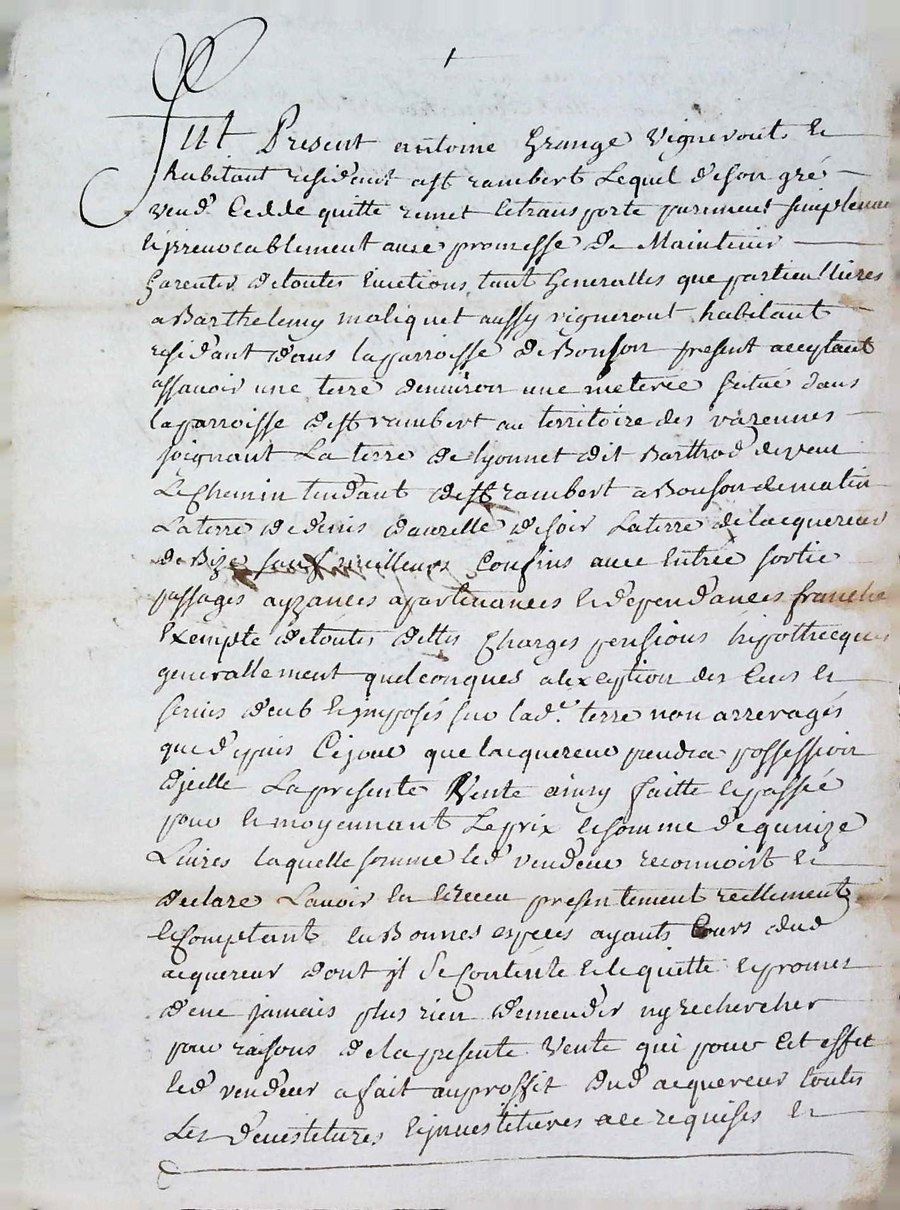 fut Present antoine Grange vigneront et
habitant resident a st rambert Lequel de son gré
vend Cedde quitte remet et transporte purement simplement
et irrevocablement avec promesse de Maintenir
Garentir de toutes Evictions tant Generalles que particullieres
a Barthelemy maliquet aussy vigneront habitant
residant dans la parroisse de Bonson present acceptant
assavoir une terre denviron une meterée scitué dans
la parroisse de st rambert au territoire des varennes
joignant La terre de lyonnet dit Barthod de vent
Le Chemin tendant de st rambert a Bonson de matin
La terre de denis daurelle de soir La terre de lacquereur
de Bize sauf meilleurs Confins avec Entrée sortie
passages ayzances apartenances et dependances franche
Exempte de toutes dettes Charges pensions hipothecques
generallement quelconques a lexception des Cens et
servis deub et imposés sur lad.e terre non arreragés
que depuis Cejour que lacquereur prendra possession
dicelle La presente Vente ainsy faitte et passée
pour et moyennant Le prix et somme de quinze
Livres laquelle somme led vendeur reconnoist et
declare Lavoir eu et Receu presentement reellement
et Comptant en Bonnes especes ayants Cours dud
acquereur dont jl Se Contente et le quitte et promet
dene jamais plus rien demender ny rechercher
pour raisons de la presente Vente qui pour Cet effet
led vendeur a fait au proffit dud acquereur toutes
Les devestitures et jnvestitures a ce requises et